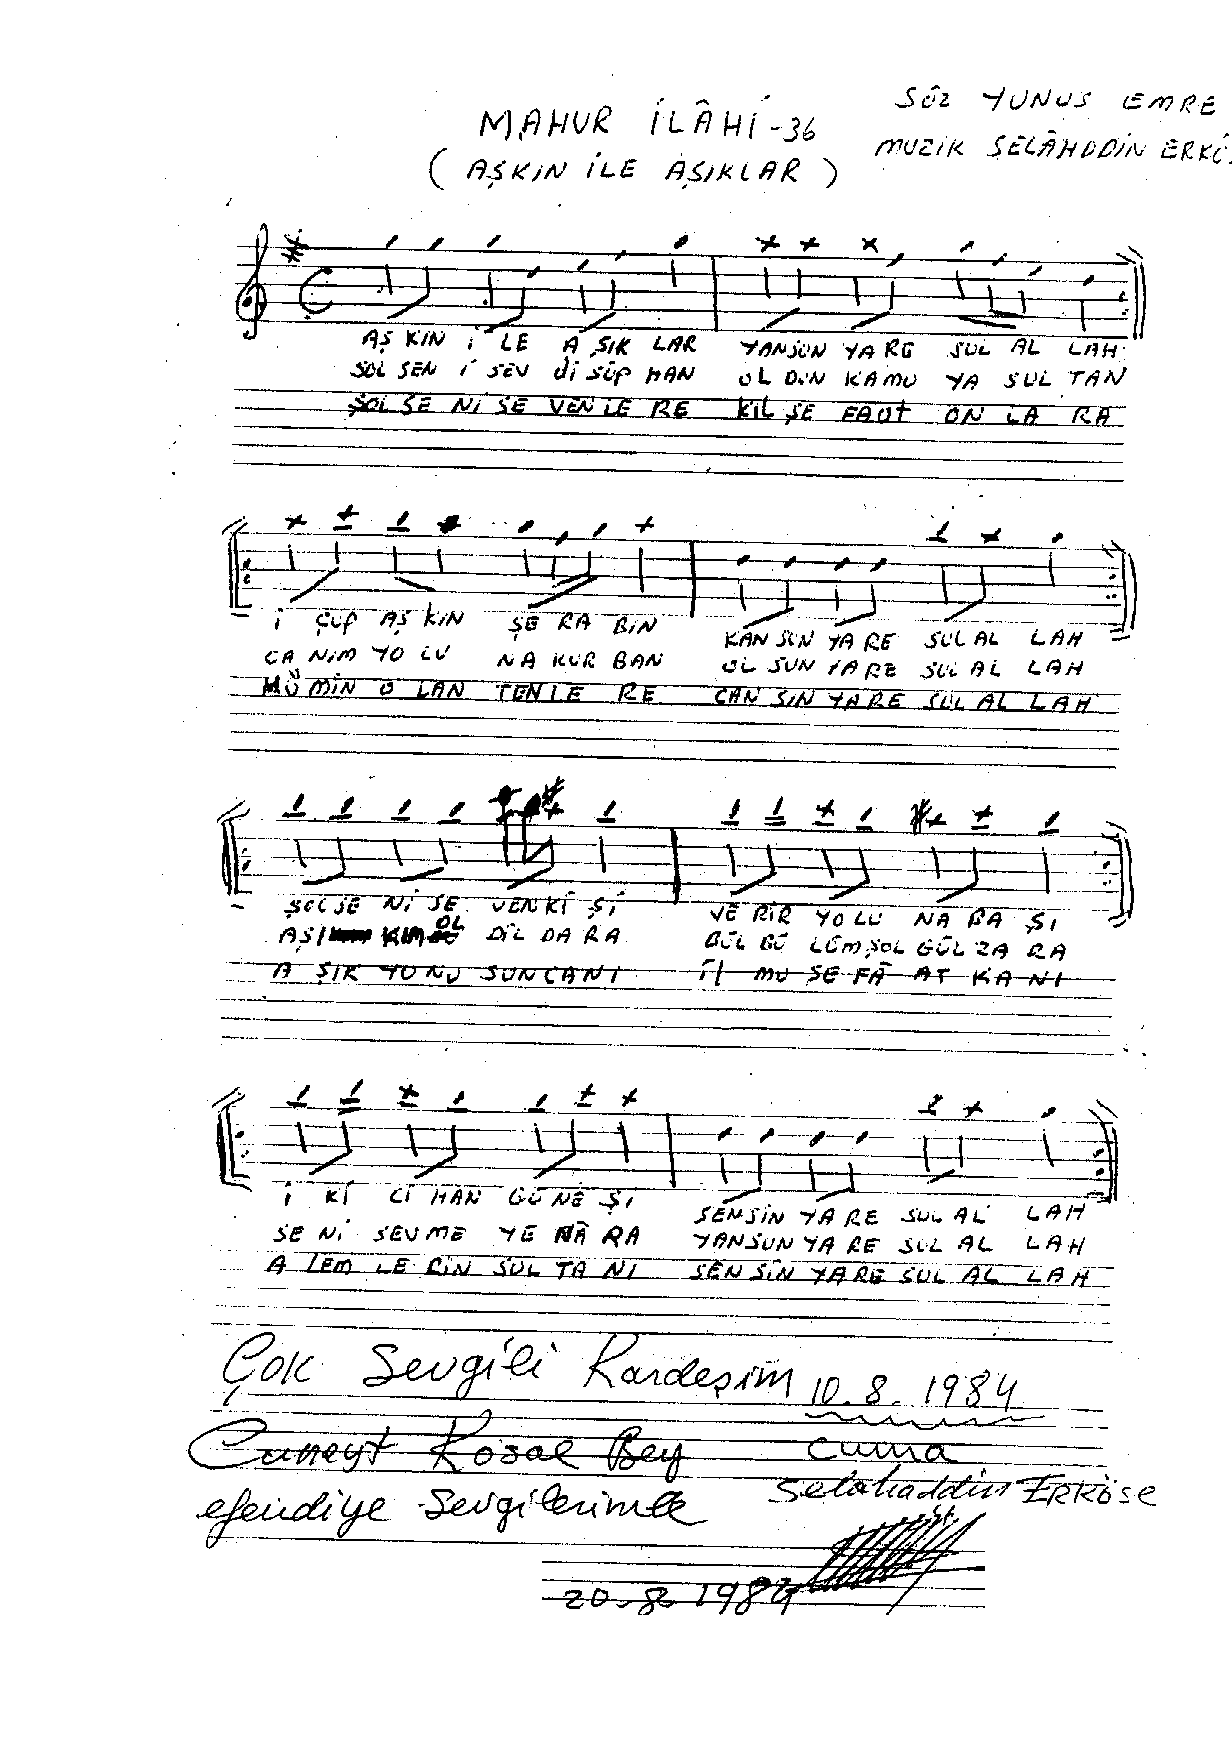 MAHUR İLÂHİ-36
(AŞKIN İLE AŞIKLAR)
SÖZ YUNUS EMRE
MUZİK SELÂHDDİN ERKÖ
AŞ KIN İ LE A ŞIK LAR YANSUN YA RE SUL AL LAH
SOL SEN İ SEV Dİ SÜP HAN OL DUN KAMU YA SUL TAN
ŞOL SE Nİ SE VEN LE RE KIL ŞE FAAT ON LA RA
İ ÇÜP AŞ KIN ŞE RA BIN KAN SUN YA RE SUL AL LAH
CA NIM YO LU NA KUR BAN OL SUN YA RE SUL AL LAH
MÜ MİN O LAN TEN LE RE CAN SIN YA RE SUL AL LAH
ŞOL SE Nİ SE VEN Kİ Şİ VE RİR YO LU NA BA ŞI
AŞI KIM OL DİL DA RA BÜL BÜ LÜM ŞOL GÜL ZA RA
A ŞIK YU NU SUN CANI İL MU ŞE FÂ AT KA NI
İ Kİ Cİ HAN GÜ NE Şİ SENSİN YA RE SUL AL LAH
SE Nİ SEV ME YE NÂ RA YANSUN YA RE SUL AL LAH
A LEM LE RİN SUL TA NI SEN SİN YA RE SUL AL LAH
Çok Sevgili Kardeşim
10.8.1984
Cuneyt Kosal Bey
cuma
efendiye Sevgilerimle
Selahaddin ERKÖSE
20.8.1984